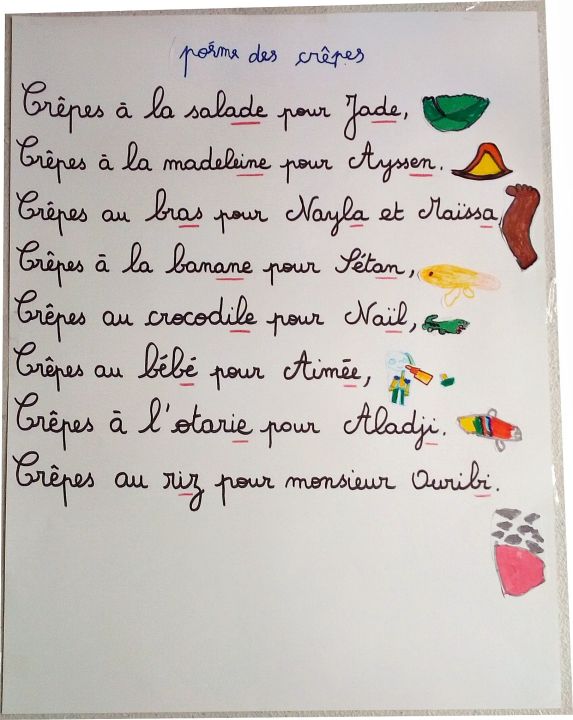 poème des crêpes
Crêpes à la salade pour Jade,
Crêpes à la madeleine pour Ayssen.
Crêpes au bras pour Nayla et Maïssa,
Crêpes à la banane pour Sétan,
Crêpes au crocodile pour Naïl,
Crêpes au bébé pour Aimée,
Crêpes à l'otarie pour Aladji.
Crêpes au riz pour monsieur Ouribi.